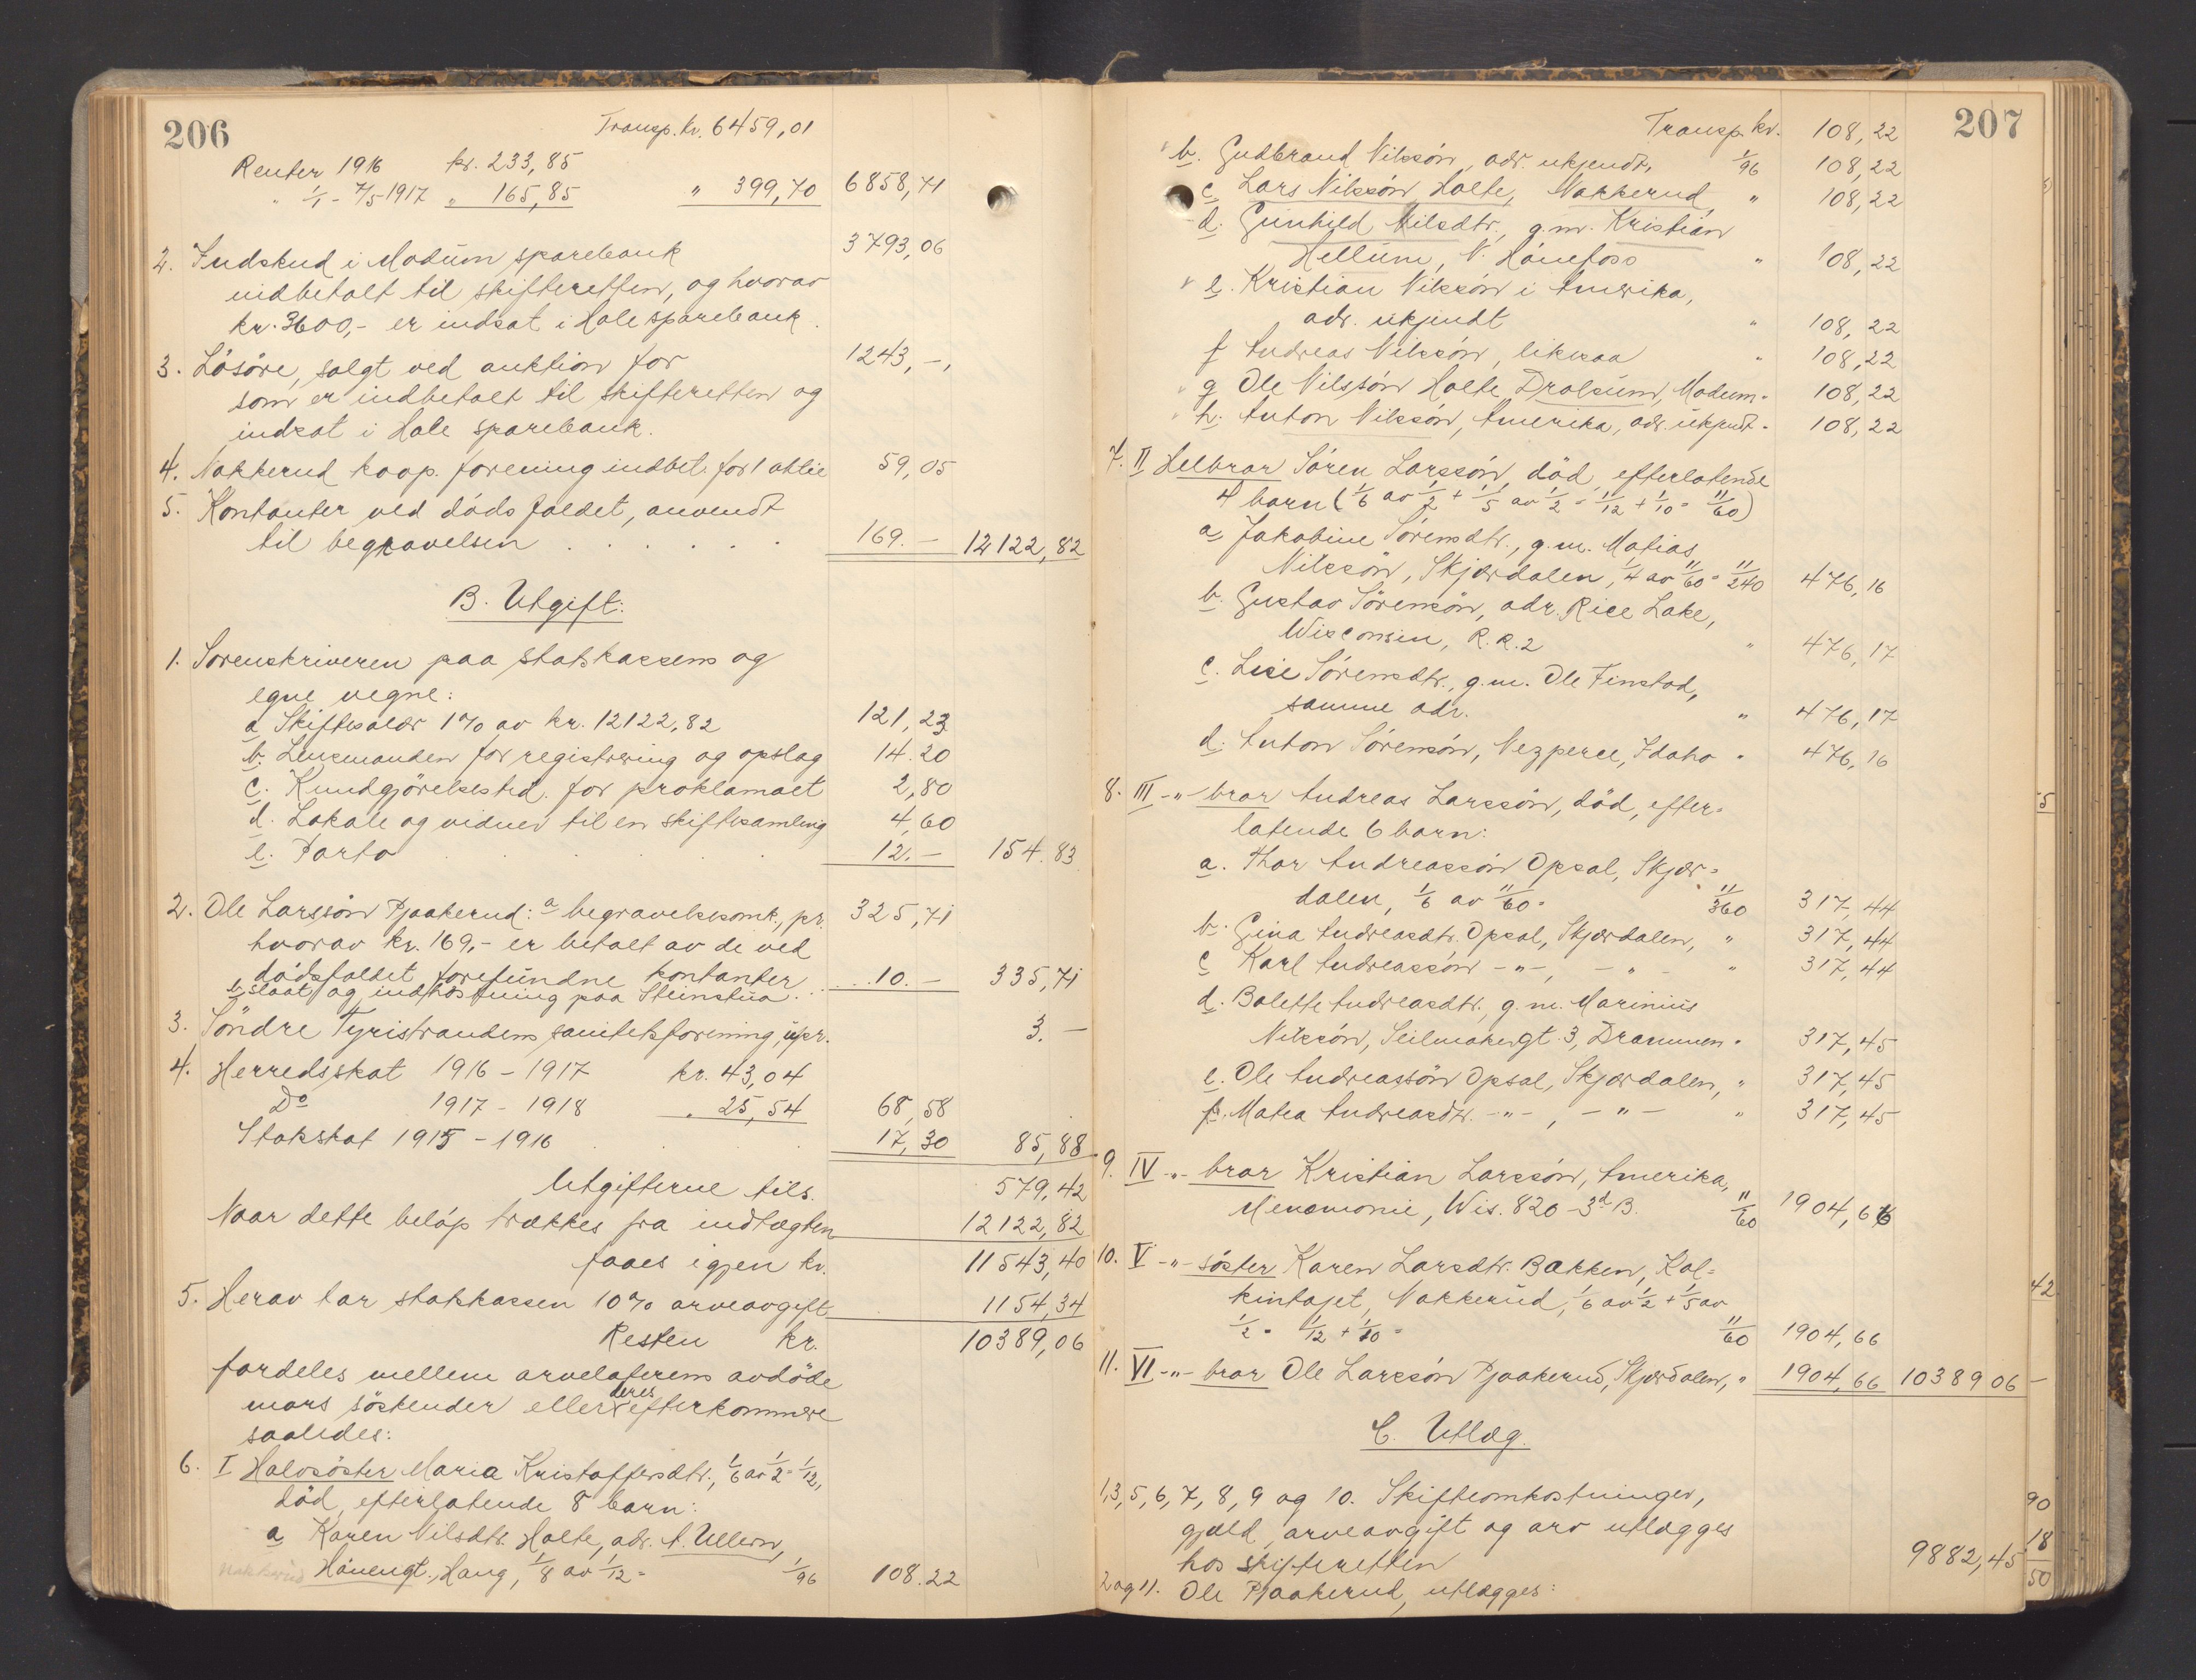 206
Transp. kr. 6459,01
Renter 1916 kr. 233,85
" 1/1 - 7/5 1917 " 165,85 " 399,70 6858,71
2. Indskud i Modum sparebank 3793,06
indbetalt til skifteretten, og hvorav
kr. 3600,- er indsat i Hole sparebank.
3. Lösöre, solgt ved auktion for 1243,-,
som er indbetalt til skifteretten og
indsat i Hole sparebank.
4. Nakkerud koop. forening indbet. for 1 aktie 59,05
5. Kontanter ved dödsfaldet, anvendt
til begravelsen . . . . . . 169.- 12122,82
B. Utgift:
1. Sorenskriveren paa statskassens og
egne vegne:
a Skiftesalær 1% av kr. 12122,82 121,23
b. Lensmanden for registrering og opslag 14.20
c. Kundgjörelsestid. for proklamaet 2,80
d. Lokale og vidner til en skiftesamling 4,60
e. Porto 12.- 154.83
2. Ole Larssön Pjaakerud: a begravelsesomk., pr. 325,71
hvorav kr. 169,- er betalt av de ved
dödsfaldet forefundne kontanter
b slaat og indhöstning paa Steinstua . . 10.- 335,71
3. Söndre Tyristrandens sanitetsforening, upr. 3.-
4. Herredsskat 1916 - 1917 kr. 43,04
Do 1917 - 1918 " 25,54 68,58
Statsskat 1915 - 1916 17,30 85,88
Utgifterne tils. 579,42
Naar dette belöp trækkes fra indtægten 12122,82
faaes igjen kr. 11543,40
5. Herav tar statskassen 10% arveavgift 1154,34
Resten kr. 10389,06
fordeles mellem arvelaterens avdöde
mors söskender eller deres efterkommere
saaledes:
6. I Halvsöster Maria Kristoffersdtr., 1/6 av 1/2 = 1/12,
död, efterlatende 8 barn:
a Karen Nilsdtr. Holte, adr. A. Ullern,
Nakkerud Hövengt., Haug, 1/8 av 1/12 = 1/96 108.22
207
Transp. kr. 108,22
b. Gudbrand Nilssön, adr. ukjendt, 1/96 108,22
c Lars Nilssön Holte, Nakkerud, " 108,22
d. Gunhild Nilsdtr., g.m. Kristian
Hellum, N. Hönefoss " 108,22
e. Kristian Nilssön i Amerika,
adr. ukjendt " 108,22
f Andreas Nilssön, likesaa " 108,22
g Ole Nilssön Holte Drolsum, Modum " 108,22
h. Anton Nilssön, Amerika, adr. ukjendt " 108,22
7. II Helbror Sören Larssön, död, efterlatende
4 barn (1/6 av 1/2 + 1/5 av 1/2 = 1/12 + 1/10 = 11/60)
a Jakobine Sörensdtr., g.m. Matias
Nilssön, Skjærdalen, 1/4 av 11/60 = 11/240 476,16
b. Gustav Sörensön, adr. Rice Lake,
Wisconsin, R.R.2 " 476,17
c. Lise Sörensdtr., g.m. Ole Finstad,
samme adr. " 476,17
d. Anton Sörensön, Nezperce, Idaho " 476,16
8. III -"- bror Andreas Larssön, död, efter-
latende 6 barn:
a. Thor Andreassön Opsal, Skjær-
dalen, 1/6 av 11/60 = 11/360 317,44
b. Gina Andreasdtr. Opsal, Skjærdalen, " 317,44
c Karl Andreassön -"-, -"- " 317,44
d. Bolette Andreasdtr., g.m. Marinius
Nilssön, Seilmakergt. 3, Drammen " 317,45
e. Ole Andreassön Opsal, Skjærdalen, " 317,45
f. Matea Andreasdtr. -"-, -"- " 317,45
9. IV -"- bror Kristian Larssön, Amerika,
Menomonie, Wis. 820 - 3d B. 11/60 1904,66
10. V -"- söster Karen Larsdtr. Bakken, Kal-
kintajet, Nakkerud, 1/6 av 1/2 + 1/5 av
1/2 = 1/12 + 1/10 = 11/60 1904,66
11. VI -"- bror Ole Larssön Pjaakerud, Skjærdalen, " 1904,66 10389 06
C. Utlæg.
1,3,5,6,7,8,9 og 10. Skifteomkostninger,
gjæld, arveavgift og arv utlægges
hos skifteretten 9882,45
2 og 11. Ole Pjaakerud, utlægges:
5
42
90
18
50